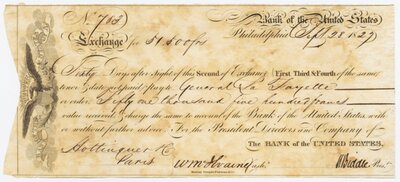 No. 783 Bank of the United States
Exchange for 51500 frs Philadelphia Sept. 28 1829
Sixty Days after Sight of this Second of Exchange (First Third & Fourth of the same
tenor & date not paid) pay to General La Fayette
or order Fifty one thousand five hundred francs
value received & charge the same to account of the Bank of the United States with
or without further advice. For the President Directors and Company of
The BANK of the UNITED STATES.
Hottinguer & Co
Paris W McIlvaine Cashr. N Biddle Prest.